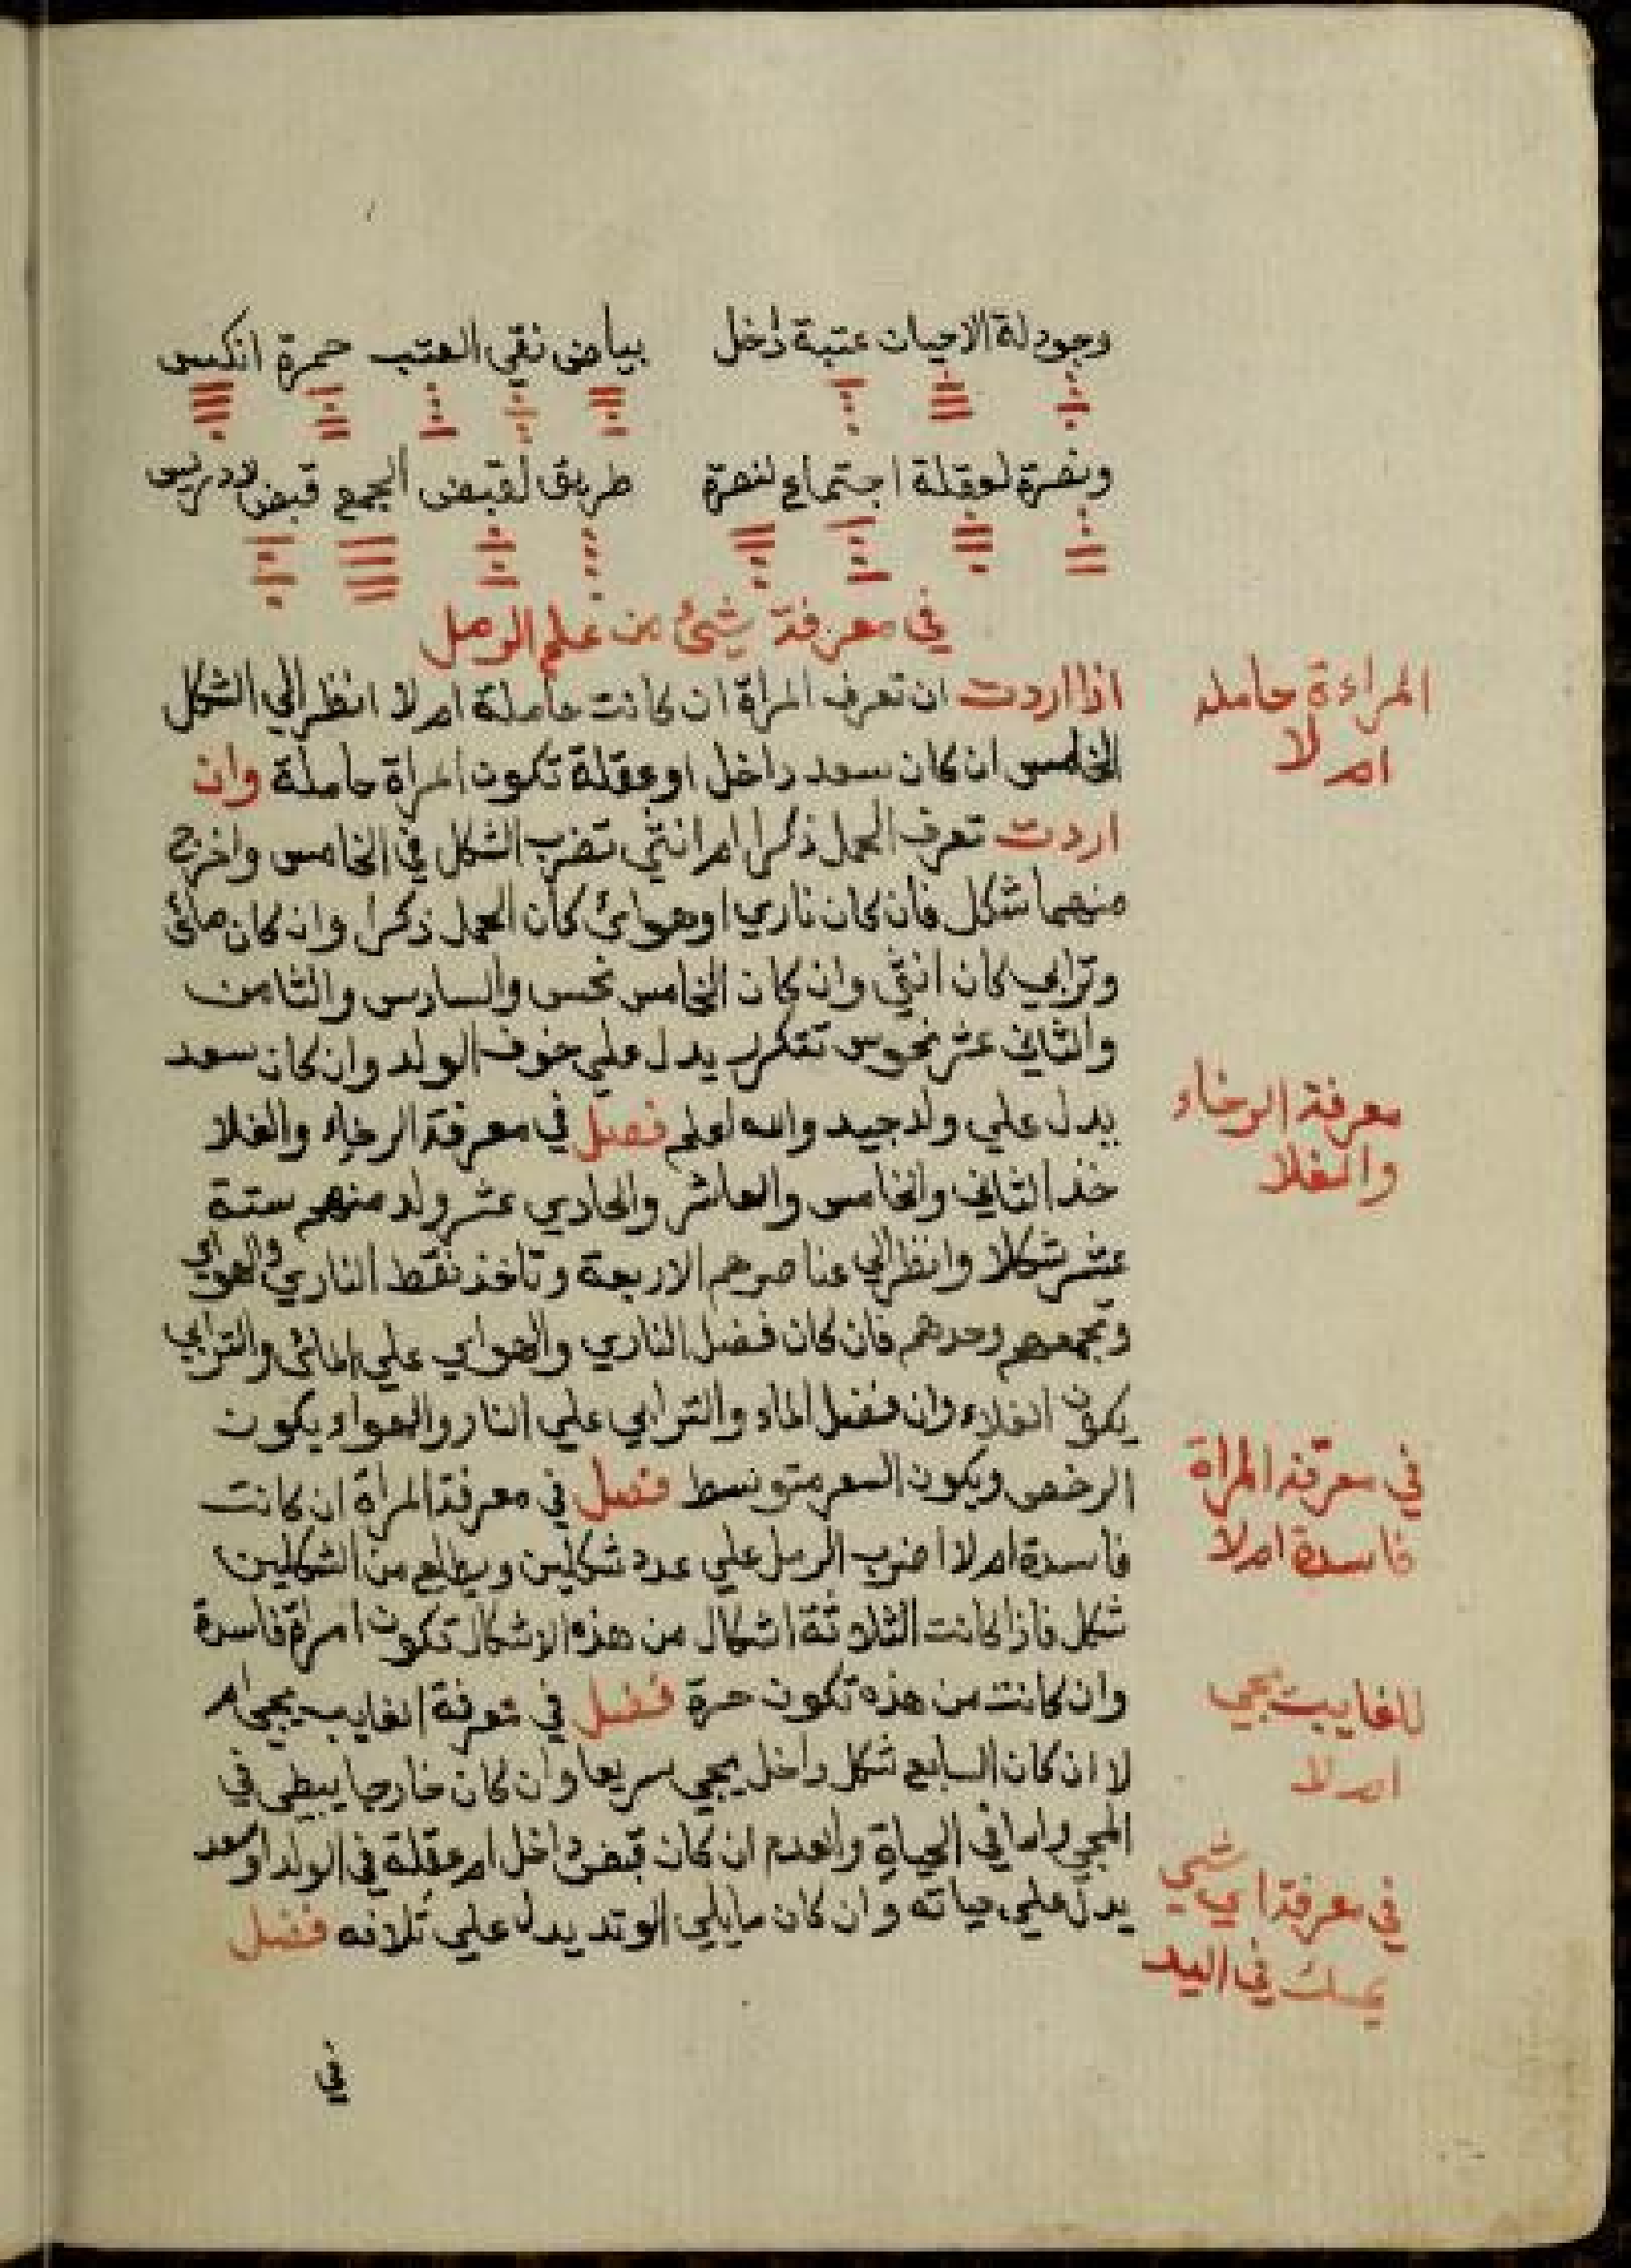 وجودلة الاحيان عتبة داخل بياض نقي العتب حمرة انكيس
ونصرة لعقلة اجتماع لنصرة طريق لقبض الجمع قبض لادريس
في معرفة شيئ من علم الرمل
اذا اردت ان تعرف المراة ان كانت حاملة ام لا انظر الي الشكل
الخامس ان كان سعد داخل او عقلة تكون المراة حاملة وان
اردت تعرف الحمل ذكرا ام انثي تضرب الشكل في الخامس واخرج
منهما شكل فان كان ناري او هوائ كان الحمل ذكرا وان كان مائي
وترابي كان انثي وان كان الخامس نحس والسادس والثامن
والثاني عشر نحوس تتكرر يدل علي خوف الولد وان كان سعد
يدل علي ولد جيد والله اعلم فصل في معرفة الرخاء والغلا
خذ الثاني والخامس والعاشر والحادي عشر ولد منهم ستة
عشر شكلا وانظر الي عناصرهم الاربعة وتاخذ نقط الناري والهوائي
وتجمعهم وحدهم فان كان فضل الناري والهوايي علي المائي والترابي
يكون الغلاء وان فضل الماء والترابي علي النار والهواء يكون
الرخص ويكون السعر متوسط فصل في معرفة المراة ان كانت
فاسدة ام لا اضرب الرمل علي عدد شكلين ويطلع من الشكلين
شكل فاذا كانت الثلاثة اشكال من هذه الاشكال تكون امراة فاسدة
وان كانت من هذه تكون حرة فصل في معرفة الغايب يجي ام
لا ان كان السابع شكل داخل يجي سريعا وان كان خارجا يبطي في
المجي واما في الحياة والعدم ان كان قبض داخل ام عقلة في الولد او سعد
يدل علي حياته وان كان مايلي الوتد يدل علي تلافه فصل
في
المراءة حامله
ام لا
معرفة الرخاء
والغلا
في معرفة المراة
فاسدة ام لا
للغايب يجي
ام لا
في معرفة اي شي
يمسك في اليد